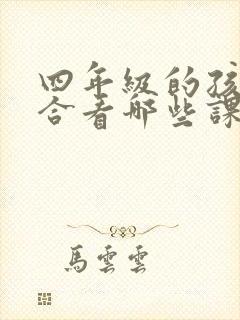 四年級的孩
合看哪些課
馬雲雲